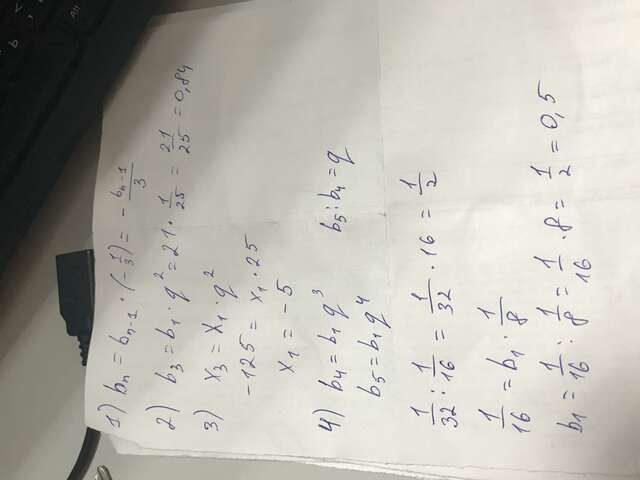 1) bₙ = bₙ₋₁ · (-1/3) = - bₙ₋₁/3
2) b₃ = b₁ · q² = 21 · 1/25 = 21/25 = 0,84
3) x₃ = x₁ · q²
-125 = x₁ · 25
x₁ = -5
4) b₄ = b₁ q³ b₅ : b₄ = q
b₅ = b₁ q⁴
1/32 : 1/16 = 1/32 · 16 = 1/2
1/16 = b₁ · 1/8
b₁ = 1/16 : 1/8 = 1/16 · 8 = 1/2 = 0,5